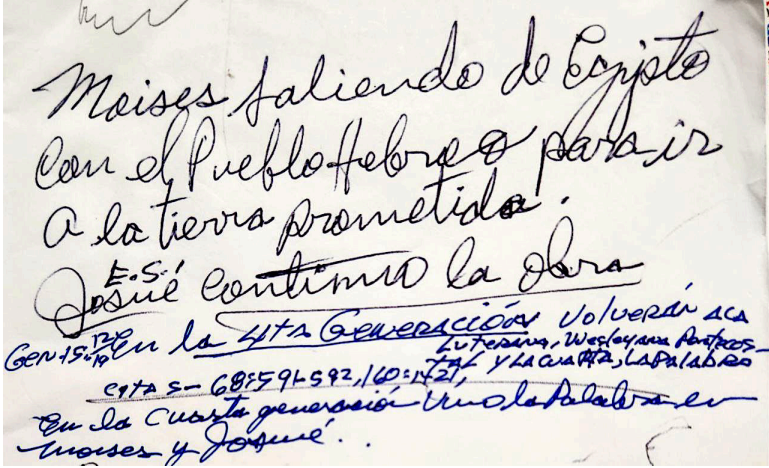 Moises saliendo de Egipto
Con el Pueblo Hebreo para ir
A la tierra prometida.
E.S.
Josué continuo la obra
GEN-15: En la 4ta Generación Volverán ACA
Luterana, Wesleyana Pentecos-
TAL Y LA CUARTA, LA PALABRA
citas - 68:591-592, 160:
En la Cuarta generación Vino la Palabra en
Moises y Josué.